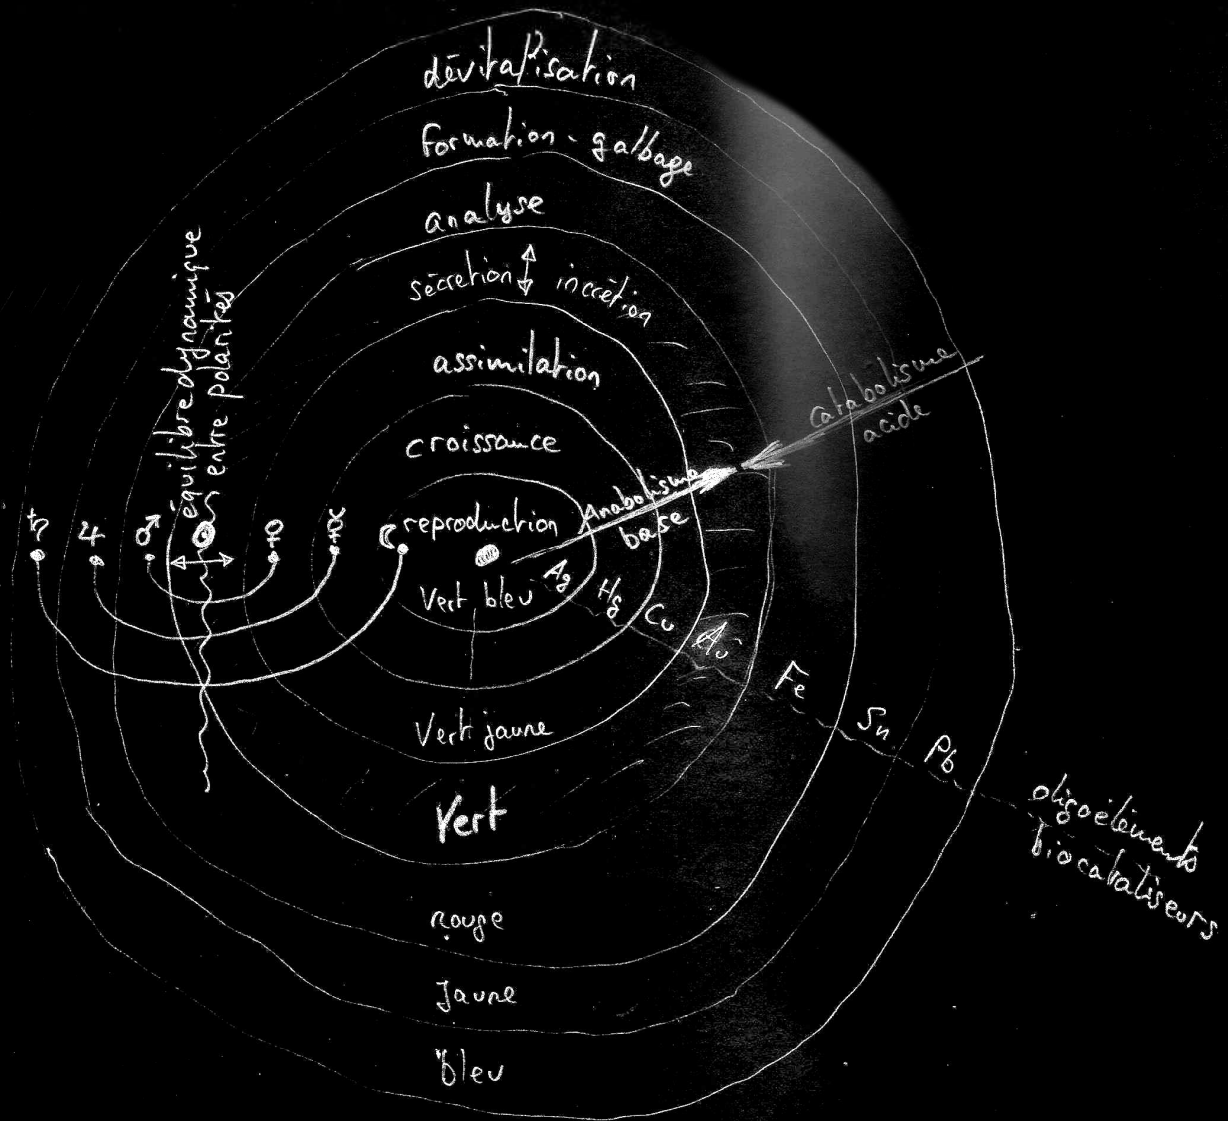 dévitalisation
formation - galbage
analyse
sécretion ↕ incrétion
assimilation
croissance
reproduction
équilibre dynamique
entre polarités
♄ ♃ ♂ ☉ ♀ ☿ ☾
catabolisme
acide
Anabolisme
base
Vert bleu
Ag Hg Cu Au Fe Sn Pb
oligoéléments
biocataliseurs
Vert jaune
Vert
rouge
jaune
bleu